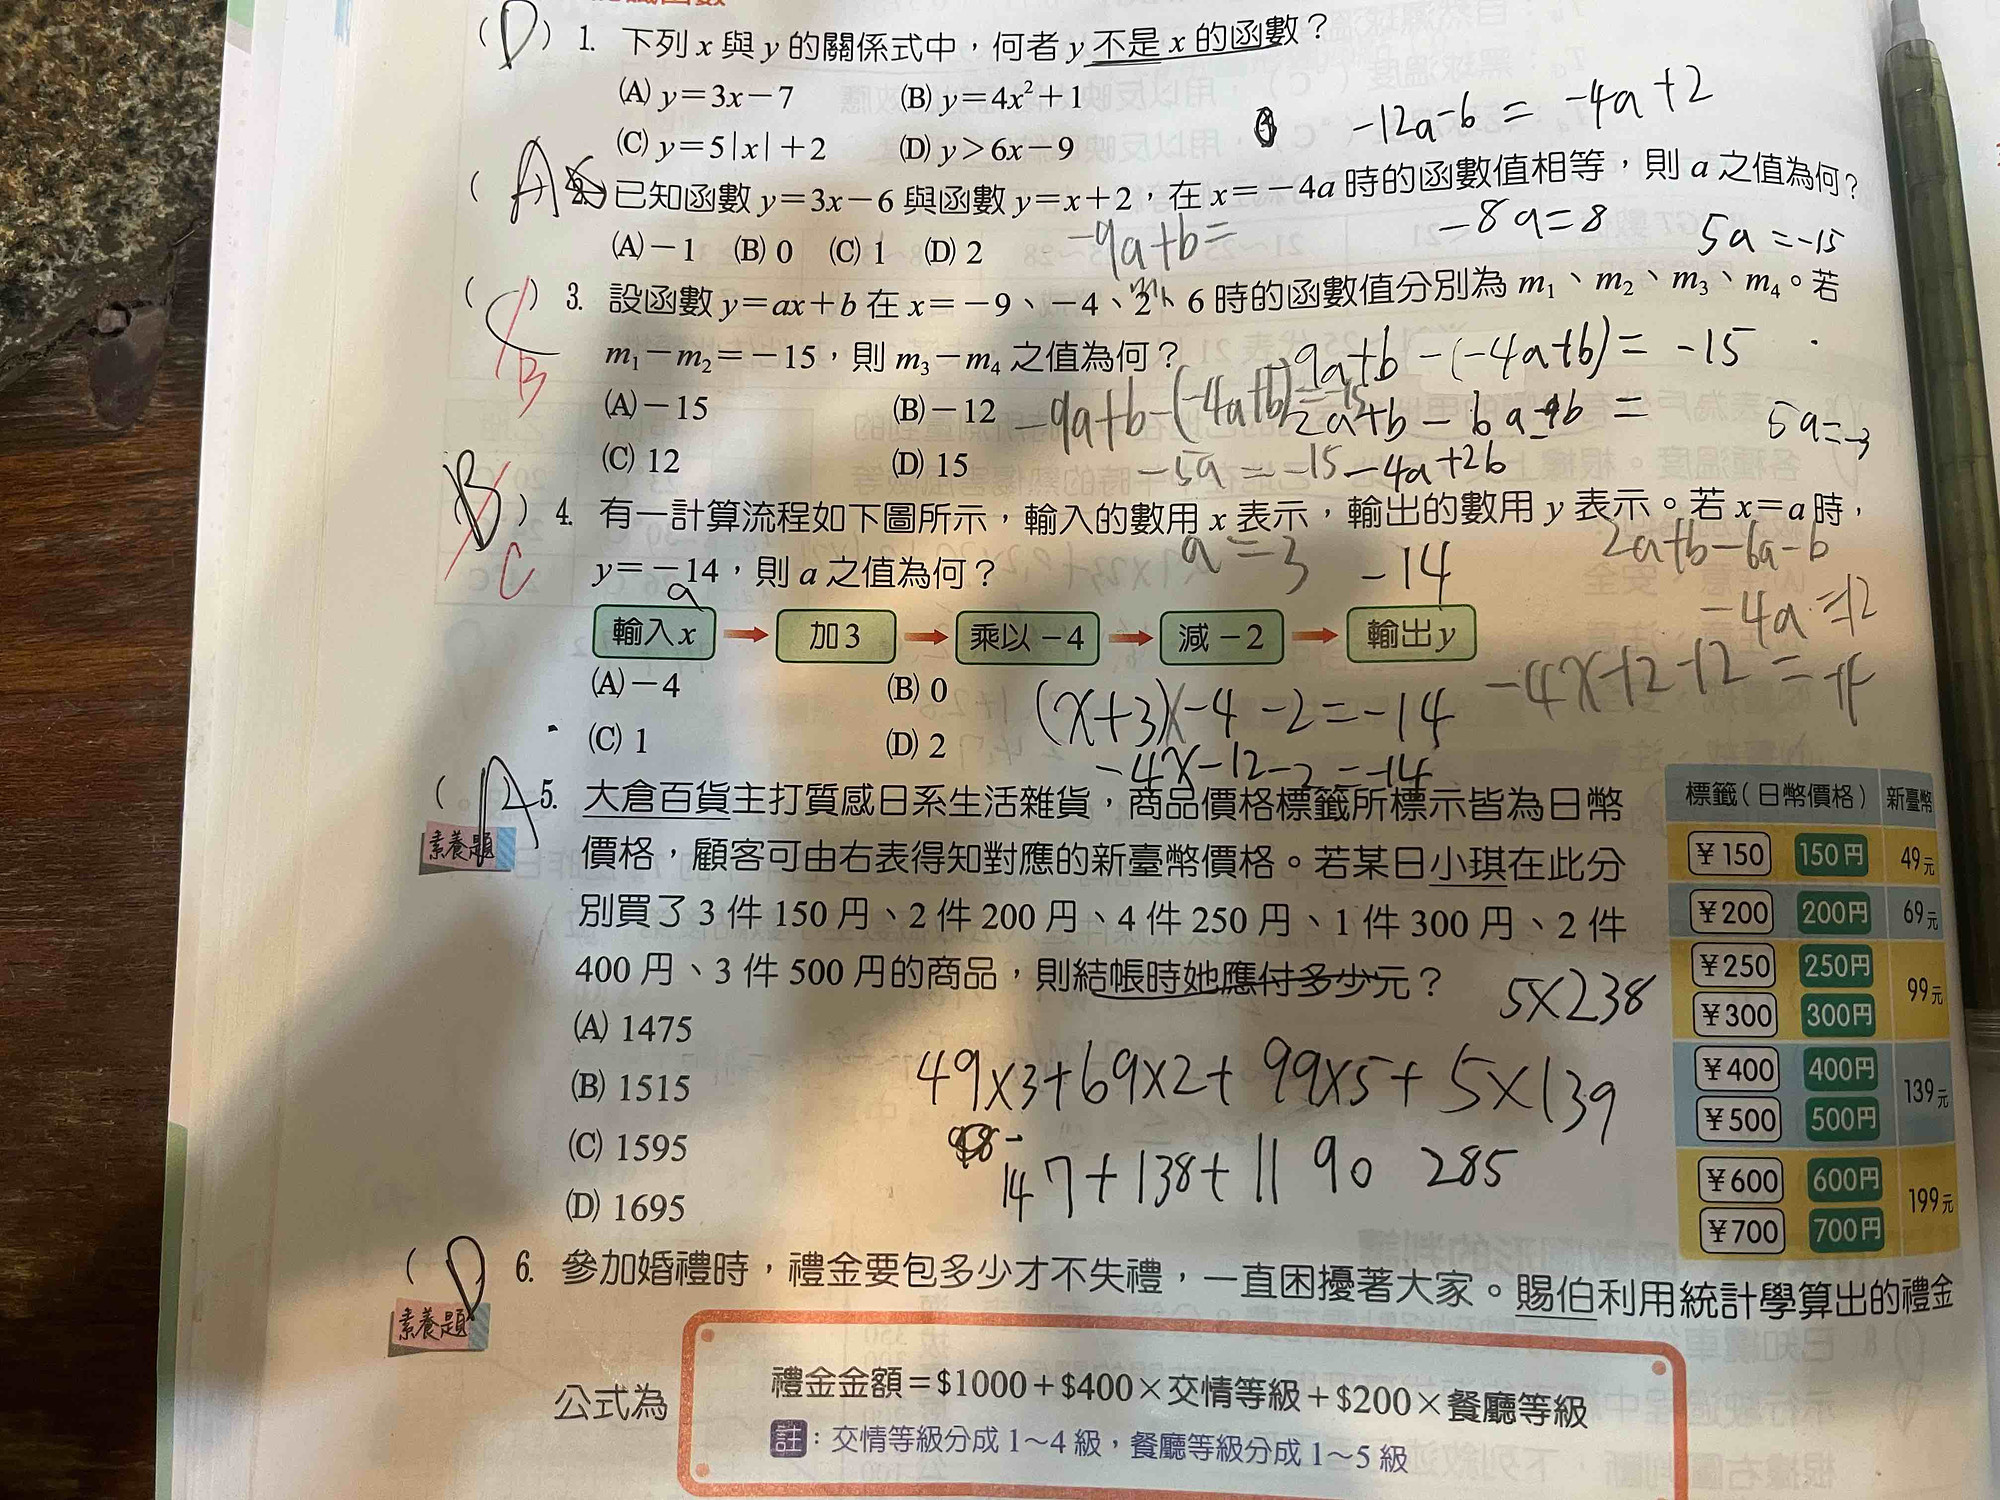 ( D ) 1. 下列 x 與 y 的關係式中，何者 y 不是 x 的函數？
(A) y＝3x－7 (B) y＝4x²＋1
(C) y＝5|x|＋2 (D) y＞6x－9
-12a-6 = -4a+2
( A 已知函數 y＝3x－6 與函數 y＝x＋2，在 x＝－4a 時的函數值相等，則 a 之值為何？
(A)－1 (B) 0 (C) 1 (D) 2
-9a+b=
-8a=8
5a=-15
( C ) 3. 設函數 y＝ax＋b 在 x＝－9、－4、2、6 時的函數值分別為 m₁、m₂、m₃、m₄。若
B
m₁－m₂＝－15，則 m₃－m₄ 之值為何？
-9a+b-(-4a+b)= -15
(A)－15 (B)－12
-9a+b-(-4a+b)=-15
2a+b-6a-b =
5a=-3
(C) 12 (D) 15
-5a = -15
-4a+2b
( B ) 4. 有一計算流程如下圖所示，輸入的數用 x 表示，輸出的數用 y 表示。若 x＝a 時，
C
y＝－14，則 a 之值為何？
a=3
-14
2a+b-6a-b
a
-4a=12
輸入 x 加 3 乘以－4 減－2 輸出 y
(A)－4 (B) 0
(C) 1 (D) 2
(x+3)x-4-2=-14
-4x-12-2=-14
( A 5. 大倉百貨主打質感日系生活雜貨，商品價格標籤所標示皆為日幣
素養題
價格，顧客可由右表得知對應的新臺幣價格。若某日小琪在此分
別買了 3 件 150 円、2 件 200 円、4 件 250 円、1 件 300 円、2 件
400 円、3 件 500 円的商品，則結帳時她應付多少元？
(A) 1475
(B) 1515
(C) 1595
(D) 1695
5×238
49×3+69×2+99×5+5×139
147+138+1190 285
標籤（日幣價格） 新臺幣
￥150 150円 49元
￥200 200円 69元
￥250 250円
99元
￥300 300円
￥400 400円
139元
￥500 500円
￥600 600円
199元
￥700 700円
( D 6. 參加婚禮時，禮金要包多少才不失禮，一直困擾著大家。賜伯利用統計學算出的禮金
素養題
公式為
禮金金額＝$1000＋$400×交情等級＋$200×餐廳等級
註：交情等級分成 1～4 級，餐廳等級分成 1～5 級